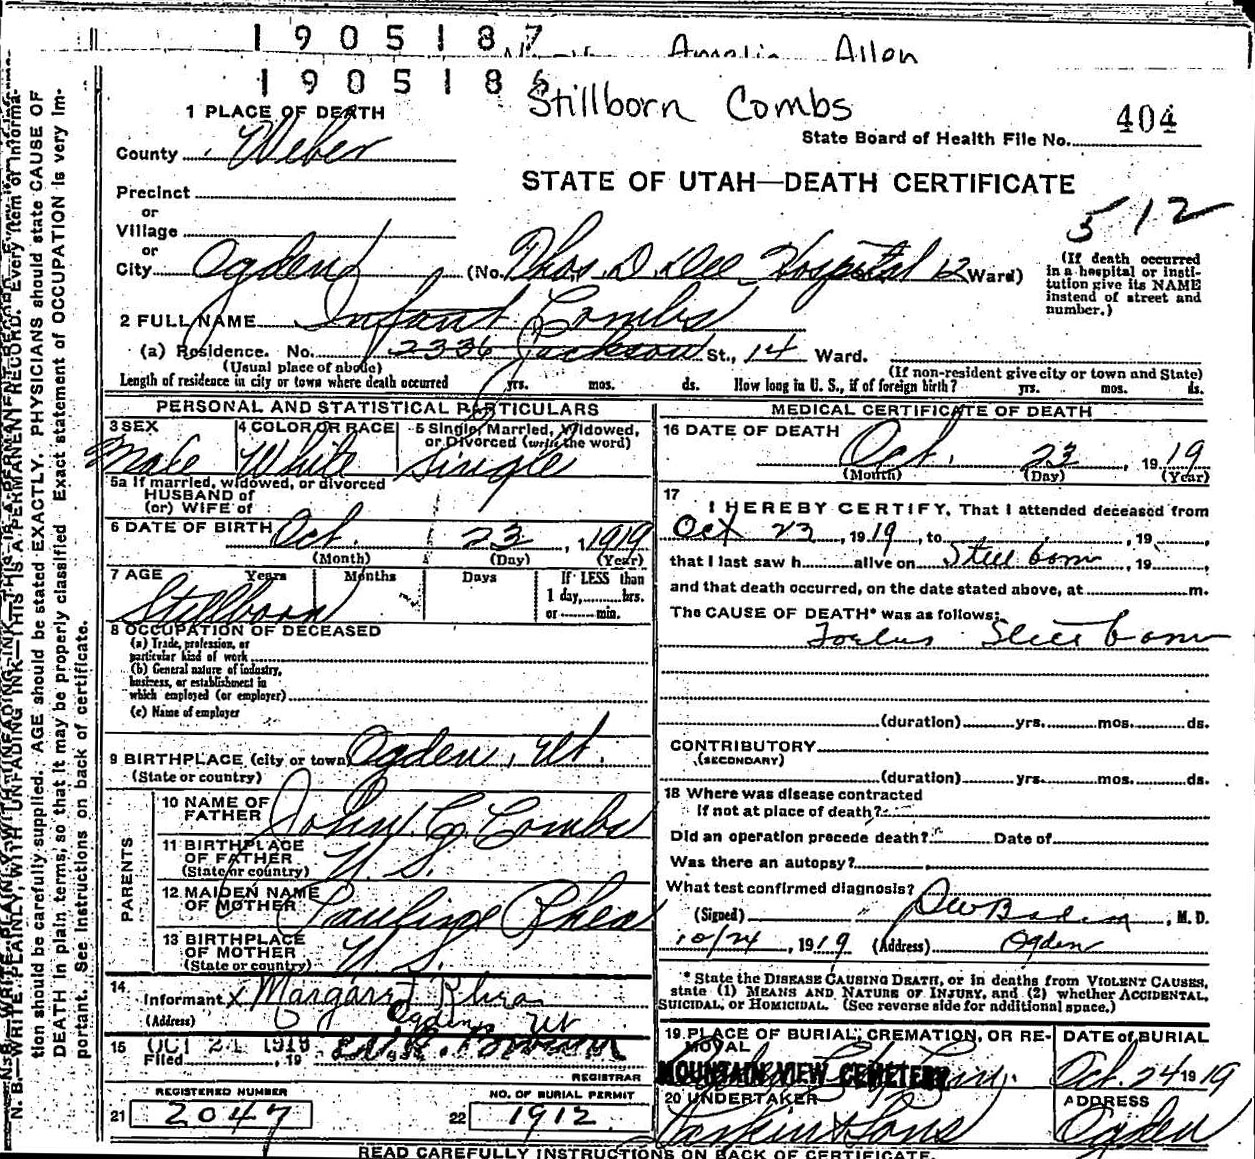 1905187
Amelia Allen
1905186
Stillborn Combs
404
1 PLACE OF DEATH
State Board of Health File No.
County Weber
STATE OF UTAH—DEATH CERTIFICATE
Precinct
or
Village
512
or
City Ogden (No. Thos. D. Dee Hospital 12 Ward)
(If death occurred in a hospital or insti-
tution give its NAME
instead of street and
number.)
2 FULL NAME Infant Combs
(a) Residence. No. 2336 Jackson St., 14 Ward.
(Usual place of abode) (If non-resident give city or town and State)
Length of residence in city or town where death occurred yrs. mos. ds. How long in U. S., if of foreign birth? yrs. mos. ds.
PERSONAL AND STATISTICAL PARTICULARS
3 SEX 4 COLOR OR RACE 5 Single, Married, Widowed,
or Divorced (write the word)
Male White Single
5a If married, widowed, or divorced
HUSBAND of
(or) WIFE of
6 DATE OF BIRTH Oct. 23, 1919
(Month) (Day) (Year)
7 AGE Years Months Days If LESS than
1 day, hrs.
or min.
Stillborn
8 OCCUPATION OF DECEASED
(a) Trade, profession, or
particular kind of work
(b) General nature of industry,
business, or establishment in
which employed (or employer)
(c) Name of employer
9 BIRTHPLACE (city or town) Ogden, Ut.
(State or country)
PARENTS
10 NAME OF
FATHER John C. Combs
11 BIRTHPLACE
OF FATHER
(State or country) U. S.
12 MAIDEN NAME
OF MOTHER Pauline Rhea
13 BIRTHPLACE
OF MOTHER
(State or country) U. S.
14
Informant x Margaret Rhea
(Address) Ogden Ut
15 OCT 24 1919
Filed, 19
REGISTRAR
REGISTERED NUMBER NO. OF BURIAL PERMIT
21 2047 22 1912
MEDICAL CERTIFICATE OF DEATH
16 DATE OF DEATH
Oct. 23, 1919
(Month) (Day) (Year)
17
I HEREBY CERTIFY, That I attended deceased from
Oct 23, 1919, to , 19 ,
that I last saw h alive on Still born, 19 ,
and that death occurred, on the date stated above, at m.
The CAUSE OF DEATH* was as follows:
Foetus Still born
(duration) yrs. mos. ds.
CONTRIBUTORY
(SECONDARY)
(duration) yrs. mos. ds.
18 Where was disease contracted
if not at place of death?
Did an operation precede death? Date of
Was there an autopsy?
What test confirmed diagnosis?
(Signed) , M. D.
10/24, 1919 (Address) Ogden
* State the DISEASE CAUSING DEATH, or in deaths from VIOLENT CAUSES,
state (1) MEANS AND NATURE OF INJURY, and (2) whether ACCIDENTAL,
SUICIDAL, or HOMICIDAL. (See reverse side for additional space.)
19 PLACE OF BURIAL, CREMATION, OR RE-
MOVAL
DATE of BURIAL
MOUNTAIN VIEW CEMETERY
Oct. 24 1919
20 UNDERTAKER ADDRESS
Larkin & Sons Ogden
READ CAREFULLY INSTRUCTIONS ON BACK OF CERTIFICATE.
N. B.—WRITE PLAINLY, WITH UNFADING INK—THIS IS A PERMANENT RECORD. Every item of informa-
tion should be carefully supplied. AGE should be stated EXACTLY. PHYSICIANS should state CAUSE OF
DEATH in plain terms, so that it may be properly classified. Exact statement of OCCUPATION is very im-
portant. See instructions on back of certificate.